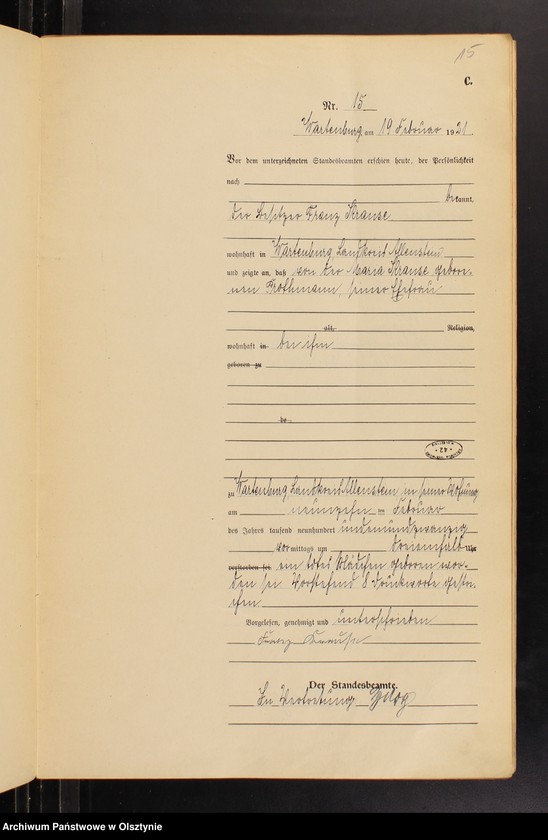 15
C.
Nr. 15
Wartenburg am 19 Februar 1921.
Vor dem unterzeichneten Standesbeamten erschien heute, der Persönlichkeit
nach
bekannt,
der Besitzer Franz Krause
wohnhaft in Wartenburg, Landkreis Allenstein
und zeigte an, daß von der Maria Krause gebore-
nen Prothmann, seiner Ehefrau
alt, Religion,
wohnhaft in bei ihm
geboren zu
de
zu Wartenburg Allenstein, in seiner Wohnung
am neunzehn ten Februar
des Jahres tausend neunhundert einundzwanzig
vormittags um Uhr
verstorben sei. ein totes Mädchen geboren wor-
den sei Vorstehend 8 Druckworte gestri-
chen.
Vorgelesen, genehmigt und unterschrieben
Franz Krause
Der Standesbeamte.
In Vertretung
Archiwum Państwowe w Olsztynie